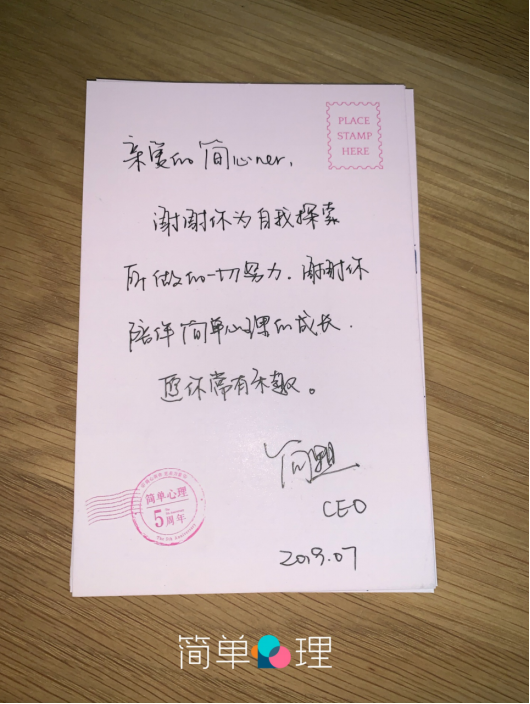 PLACE
STAMP
HERE
亲爱的简心ner,
谢谢你为自我探索
所做的一切努力.谢谢你
陪伴简单心理的成长.
愿你常有乐趣。
CEO
2019.07
简单心理
5周年
The 5th Anniversary
简单 理